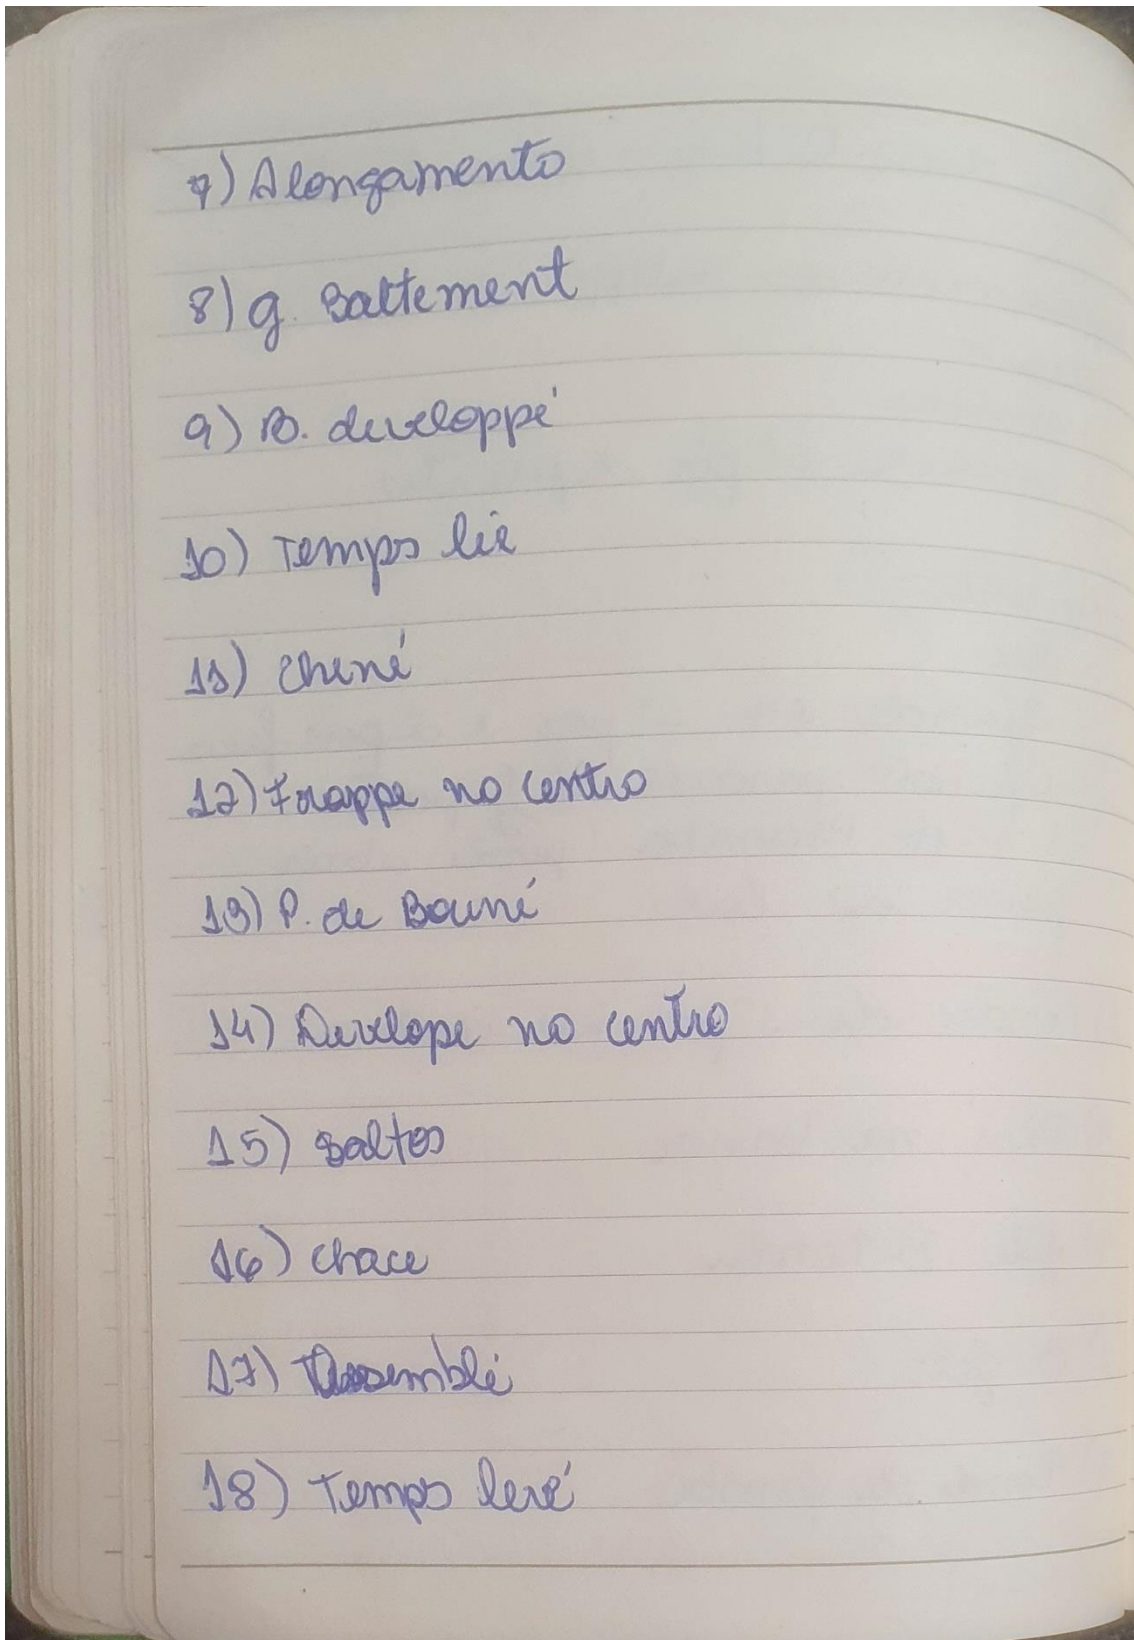 7) Alongamento
8) g. Battement
9) B. developpé
10) Temps lié
11) Chené
12) Frappe no centro
13) P. de Bourré
14) Develope no centro
15) Saltos
16) Chace
17) Assemblé
18) Temps levé